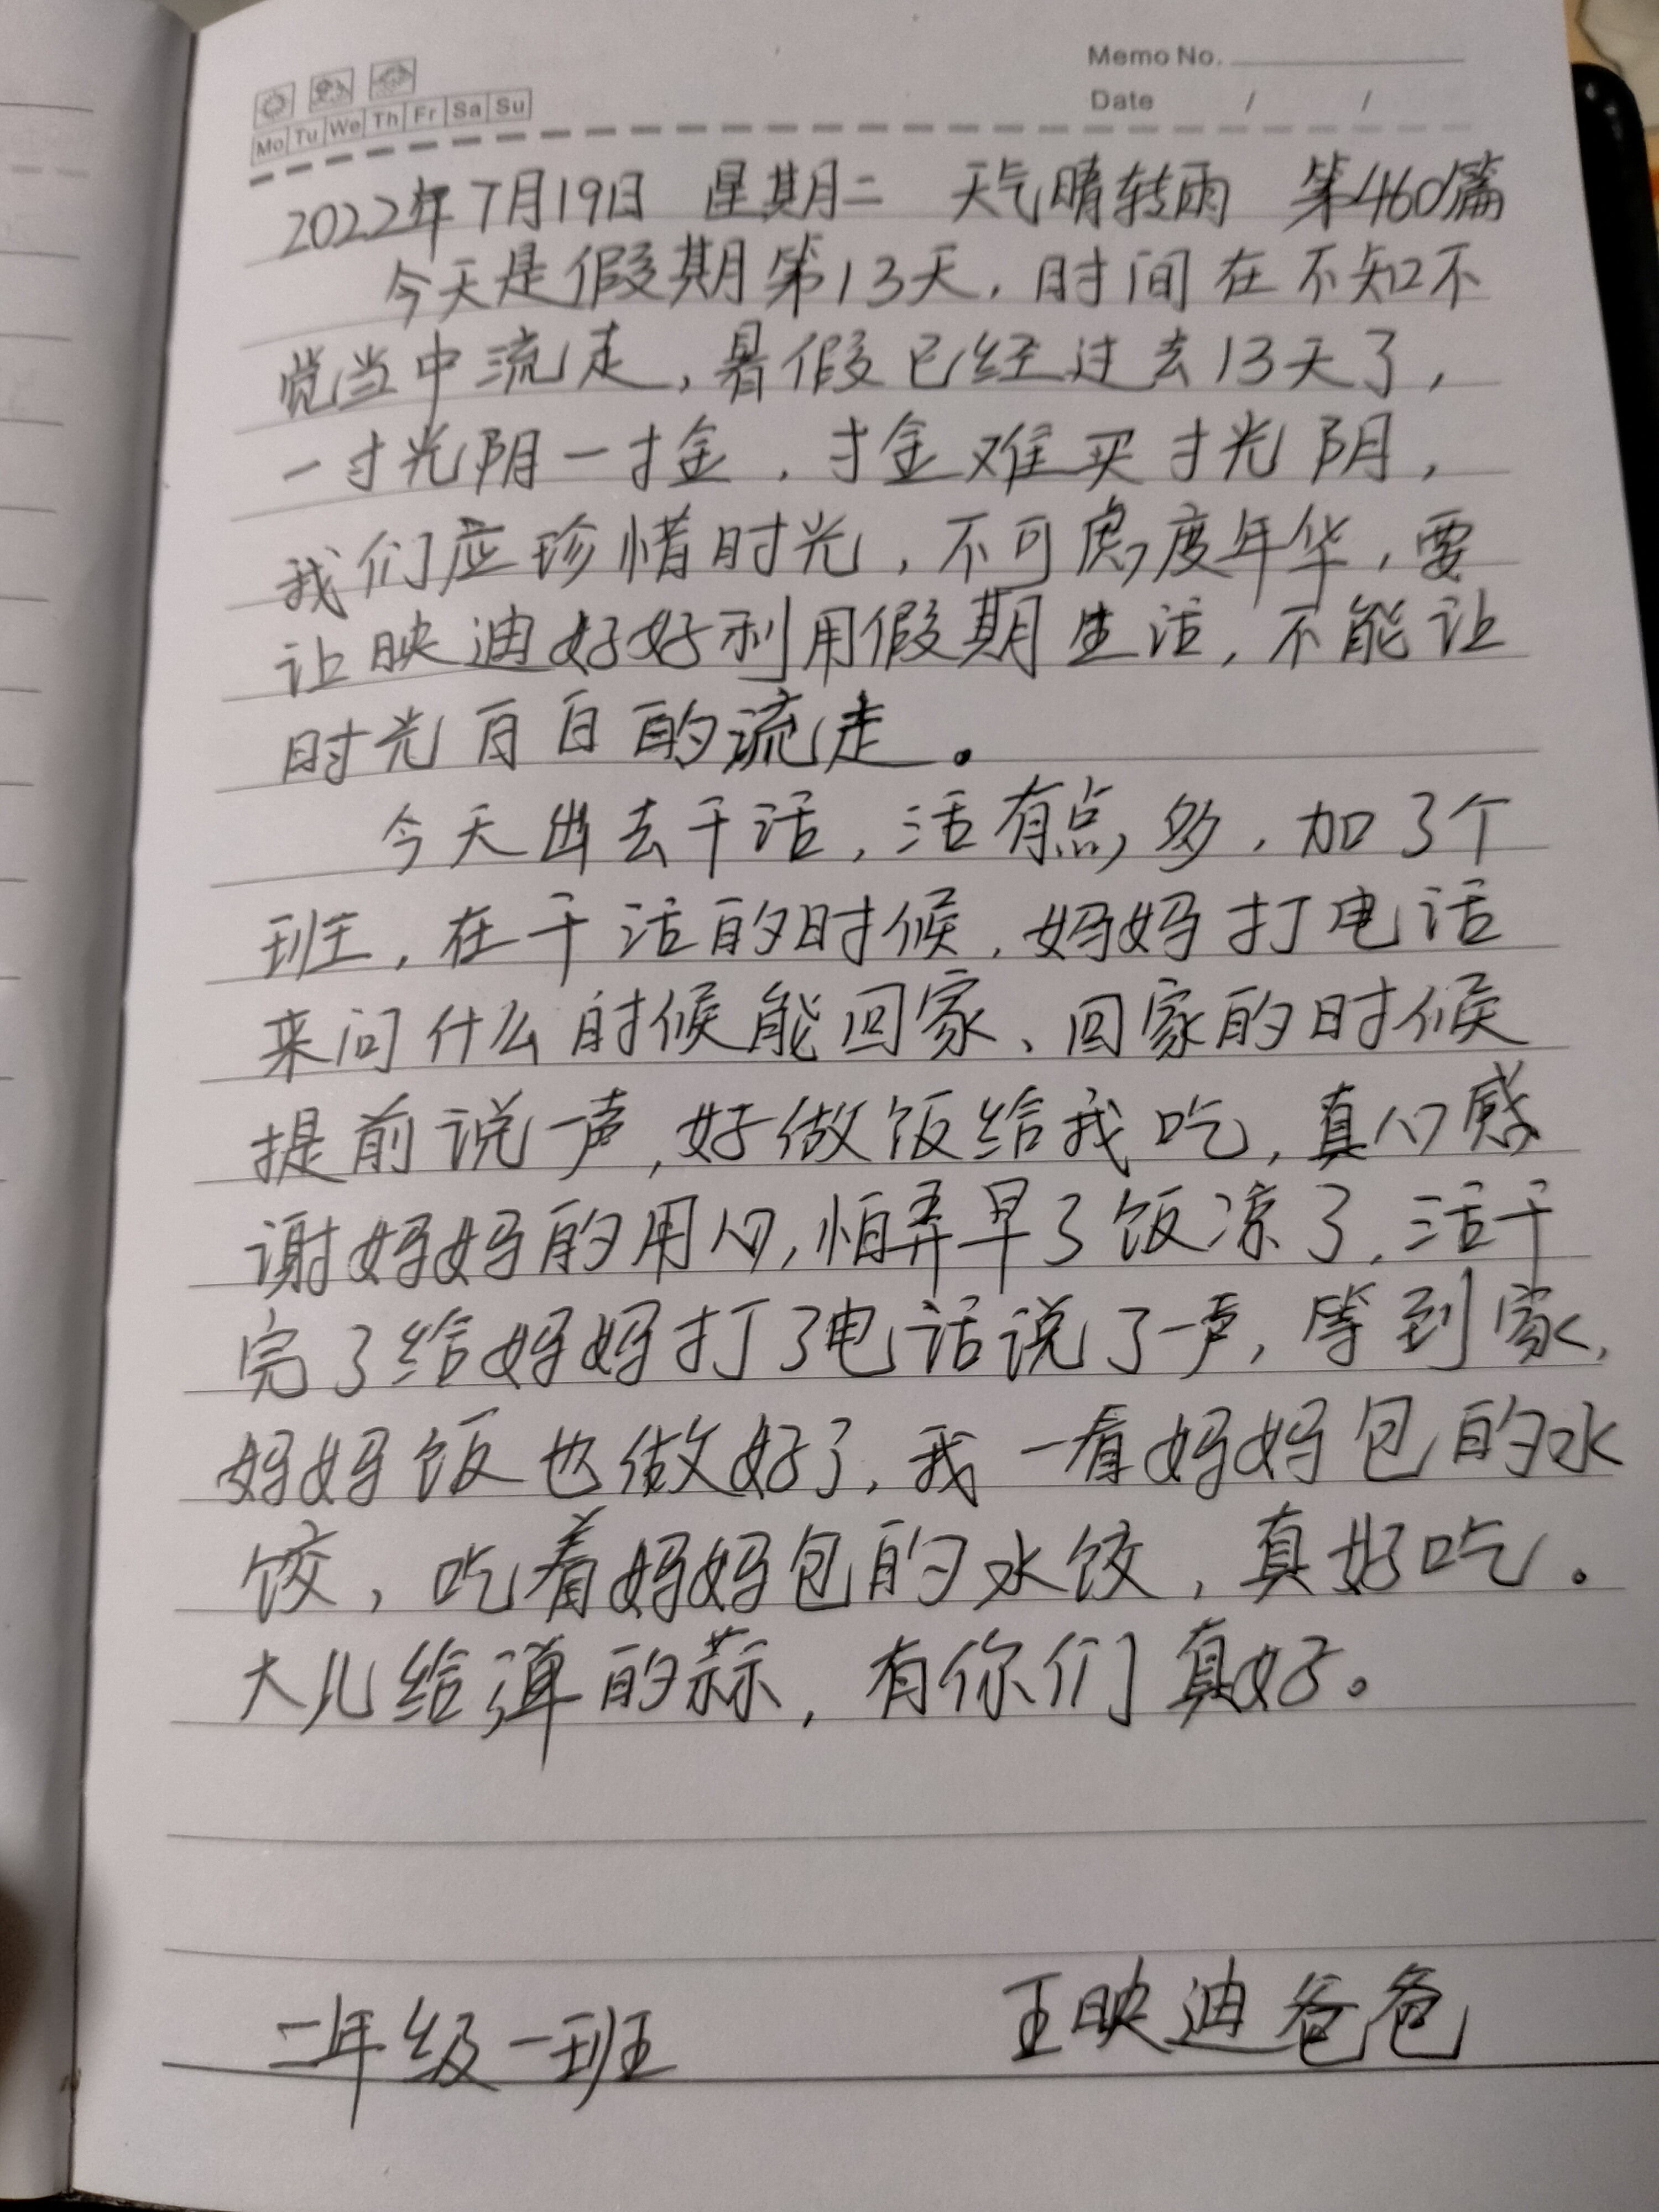 Memo No.
Mo Tu We Th Fr Sa Su
Date / /
2022年7月19日 星期二 天气晴转雨 第460篇
今天是假期第13天，时间在不知不
觉当中流走，暑假已经过去13天了，
一寸光阴一寸金，寸金难买寸光阴，
我们应珍惜时光，不可虑度年华，要
让映迪好好利用假期生活，不能让
时光百白的流走。
今天出去干活，活有点多，加了个
班，在干活的时候，妈妈打电话
来问什么时候能回家、回家的时候
提前说一声，好做饭给我吃，真心感
谢妈妈的用心，怕弄早了饭凉了，活干
完了给妈妈打了电话说了一声，等到家，
妈妈饭也做好了，我一看妈妈包的水
饺，吃着妈妈包的水饺，真好吃。
大儿给弹的蒜，有你们真好。
二年级一班 王映迪爸爸